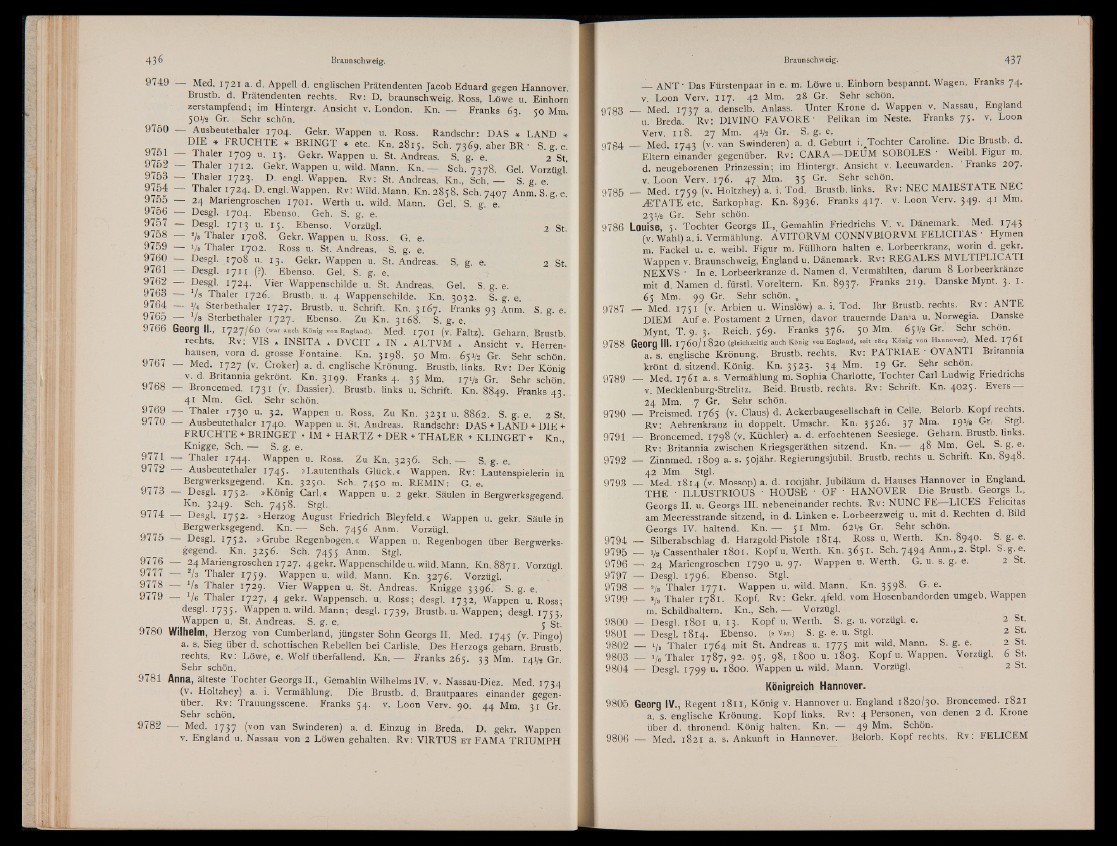 436
Braunschweig.
9749 — Med. 1721 a. d. Appell d. englischen Prätendenten Jacob Eduard gegen Hannover.
Brustb. d. Prätendenten rechts. Rv: D. braunschweig. Ross, Löwe u. Einhorn
zerstampfend; im Hintergr. Ansicht v. London. Kn. — Franks 63. 50 Mm.
50½ Gr. Sehr schön.
9750 — Ausbeutethaler 1704. Gekr. Wappen u. Ross. Randschr: DAS * LAND *
DIE * FRUCHTE * BRINGT * etc. Kn. 2815. Sch. 7369, aber BR · S. g. e.
9751 — Thaler 1709 u. 13. Gekr. Wappen u. St. Andreas. S. g. e. 2 St.
9752 — Thaler 1712. Gekr. Wappen u. wild. Mann. Kn. — Sch. 7378. Gel. Vorzügl.
9753 — Thaler 1723. D. engl. Wappen. Rv: St. Andreas. Kn., Sch. — S. g. e.
9754 — Thaler 1724. D. engl. Wappen. Rv: Wild. Mann. Kn. 2858. Sch. 7407 Anm. S. g. e.
9755 — 24 Mariengroschen 1701. Werth u. wild. Mann. Gel. S. g. e.
9756 — Desgl. 1704. Ebenso. Geh. S. g. e.
9757 — Desgl. 1713 u. 15. Ebenso. Vorzügl. 2 St.
9758 — ²/₃ Thaler 1708. Gekr. Wappen u. Ross. G. e.
9759 — ¹/₃ Thaler 1702. Ross u. St. Andreas. S. g. e.
9760 — Desgl. 1708 u. 13. Gekr. Wappen u. St. Andreas. S. g. e. 2 St.
9761 — Desgl. 1711 (?). Ebenso. Gel. S. g. e.
9762 — Desgl. 1724. Vier Wappenschilde u. St. Andreas. Gel. S. g. e.
9763 — ¹/₈ Thaler 1726. Brustb. u. 4 Wappenschilde. Kn. 3032. S. g. e.
9764 — ¼ Sterbethaler 1727. Brustb. u. Schrift. Kn. 3167. Franks 93 Anm. S. g. e.
9765 — ¹/₈ Sterbethaler 1727. Ebenso. Zu Kn. 3168. S. g. e.
9766 Georg II., 1727/60 (war auch König von England). Med. 1701 (v. Faltz). Geharn. Brustb.
rechts. Rv: VIS . INSITA . DVCIT . IN . ALTVM . Ansicht v. Herren-
hausen, vorn d. grosse Fontaine. Kn. 3198. 50 Mm. 65½ Gr. Sehr schön.
9767 — Med. 1727 (v. Croker) a. d. englische Krönung. Brustb. links. Rv: Der König
v. d. Britannia gekrönt. Kn. 3199. Franks 4. 35 Mm. 17½ Gr. Sehr schön.
9768 — Broncemed. 1731 (v. Dassier). Brustb. links u. Schrift. Kn. 8849. Franks 43.
41 Mm. Gel. Sehr schön.
9769 — Thaler 1730 u. 32. Wappen u. Ross. Zu Kn. 3231 u. 8862. S. g. e. 2 St.
9770 — Ausbeutethaler 1740. Wappen u. St. Andreas. Randschr: DAS + LAND + DIE +
FRUCHTE + BRINGET · IM + HARTZ + DER + THALER + KLINGET + Kn.,
Knigge, Sch. — S. g. e.
9771 — Thaler 1744. Wappen u. Ross. Zu Kn. 3236. Sch. — S. g. e.
9772 — Ausbeutethaler 1745. »Lautenthals Glück.« Wappen. Rv: Lautenspielerin in
Bergwerksgegend. Kn. 3250. Sch. 7450 m. REMIN: G. e.
9773 — Desgl. 1752. »König Carl.« Wappen u. 2 gekr. Säulen in Bergwerksgegend.
Kn. 3249. Sch. 7458. Stgl.
9774 — Desgl. 1752. »Herzog August Friedrich Bleyfeld.« Wappen u. gekr. Säule in
Bergwerksgegend. Kn. — Sch. 7456 Anm. Vorzügl.
9775 — Desgl. 1752. »Grube Regenbogen.« Wappen u. Regenbogen über Bergwerks-
gegend. Kn. 3256. Sch. 7455 Anm. Stgl.
9776 — 24 Mariengroschen 1727. 4 gekr. Wappenschilde u. wild. Mann. Kn. 8871. Vorzügl.
9777 — ²/₃ Thaler 1759. Wappen u. wild. Mann. Kn. 3276. Vorzügl.
9778 — ¹/₃ Thaler 1729. Vier Wappen u. St. Andreas. Knigge 3396. S. g. e.
9779 — ¹/₆ Thaler 1727, 4 gekr. Wappensch. u. Ross; desgl. 1732, Wappen u. Ross;
desgl. 1735, Wappen u. wild. Mann; desgl. 1739, Brustb. u. Wappen; desgl. 1753,
Wappen u. St. Andreas. S. g. e. 5 St.
9780 Wilhelm, Herzog von Cumberland, jüngster Sohn Georgs II. Med. 1745 (v. Pingo)
a. s. Sieg über d. schottischen Rebellen bei Carlisle. Des Herzogs geharn. Brustb.
rechts. Rv: Löwe, e. Wolf überfallend. Kn. — Franks 265. 33 Mm. 14½ Gr.
Sehr schön.
9781 Anna, älteste Tochter Georgs II., Gemahlin Wilhelms IV. v. Nassau-Diez. Med. 1734
(v. Holtzhey) a. i. Vermählung. Die Brustb. d. Brautpaares einander gegen-
über. Rv: Trauungsscene. Franks 54. v. Loon Verv. 90. 44 Mm. 31 Gr.
Sehr schön.
9782 — Med. 1737 (von van Swinderen) a. d. Einzug in Breda. D. gekr. Wappen
v. England u. Nassau von 2 Löwen gehalten. Rv: VIRTUS ET FAMA TRIUMPH
Braunschweig.
437
— ANT · Das Fürstenpaar in e. m. Löwe u. Einhorn bespannt. Wagen. Franks 74.
v. Loon Verv. 117. 42 Mm. 28 Gr. Sehr schön.
9783 — Med. 1737 a. denselb. Anlass. Unter Krone d. Wappen v. Nassau, England
u. Breda. Rv: DIVINO FAVORE · Pelikan im Neste. Franks 75. v. Loon
Verv. 118. 27 Mm. 4½ Gr. S. g. e.
9784 — Med. 1743 (v. van Swinderen) a. d. Geburt i. Tochter Caroline. Die Brustb. d.
Eltern einander gegenüber. Rv: CARA—DEÛM SOBOLES · Weibl. Figur m.
d. neugeborenen Prinzessin; im Hintergr. Ansicht v. Leeuwarden. Franks 207.
v. Loon Verv. 176. 47 Mm. 35 Gr. Sehr schön.
9785 — Med. 1759 (v. Holtzhey) a. i. Tod. Brustb. links. Rv: NEC MAIESTATE NEC
ÆTATE etc. Sarkophag. Kn. 8936. Franks 417. v. Loon Verv. 349. 41 Mm.
23½ Gr. Sehr schön.
9786 Louise, 5. Tochter Georgs II., Gemahlin Friedrichs V. v. Dänemark. Med. 1743
(v. Wahl) a. i. Vermählung. AVITORVM CONNVBIORVM FELICITAS · Hymen
m. Fackel u. e. weibl. Figur m. Füllhorn halten e. Lorbeerkranz, worin d. gekr.
Wappen v. Braunschweig, England u. Dänemark. Rv: REGALES MVLTIPLICATI
NEXVS · In e. Lorbeerkranze d. Namen d. Vermählten, darum 8 Lorbeerkränze
mit d. Namen d. fürstl. Voreltern. Kn. 8937. Franks 219. Danske Mynt. 3. 1.
65 Mm. 99 Gr. Sehr schön.
9787 — Med. 1751 (v. Arbien u. Winslöw) a. i. Tod. Ihr Brustb. rechts. Rv: ANTE
DIEM Auf e. Postament 2 Urnen, davor trauernde Dania u. Norwegia. Danske
Mynt. T. 9. 3. Reich. 569. Franks 376. 50 Mm. 65½ Gr. Sehr schön.
9788 Georg III. 1760/1820 (gleichzeitig auch König von England, seit 1814 König von Hannover). Med. 1761
a. s. englische Krönung. Brustb. rechts. Rv: PATRIAE · OVANTI Britannia
krönt d. sitzend. König. Kn. 3523. 34 Mm. 19 Gr. Sehr schön.
9789 — Med. 1761 a. s. Vermählung m. Sophia Charlotte, Tochter Carl Ludwig Friedrichs
v. Mecklenburg-Strelitz. Beid. Brustb. rechts. Rv: Schrift. Kn. 4025. Evers —
24 Mm. 7 Gr. Sehr schön.
9790 — Preismed. 1765 (v. Claus) d. Ackerbaugesellschaft in Celle. Belorb. Kopf rechts.
Rv: Aehrenkranz in doppelt. Umschr. Kn. 3526. 37 Mm. 19½ Gr. Stgl.
9791 — Broncemed. 1798 (v. Küchler) a. d. erfochtenen Seesiege. Geharn. Brustb. links.
Rv: Britannia zwischen Kriegsgeräthen sitzend. Kn. — 48 Mm. Gel. S. g. e.
9792 — Zinnmed. 1809 a. s. 50jähr. Regierungsjubil. Brustb. rechts u. Schrift. Kn. 8948.
42 Mm. Stgl.
9793 — Med. 1814 (v. Mossop) a. d. 100jähr. Jubiläum d. Hauses Hannover in England.
THE · ILLUSTRIOUS · HOUSE · OF · HANOVER Die Brustb. Georgs I.,
Georgs II. u. Georgs III. nebeneinander rechts. Rv: NUNC FE—LICES Felicitas
am Meeresstrande sitzend, in d. Linken e. Lorbeerzweig u. mit d. Rechten d. Bild
Georgs IV. haltend. Kn. — 51 Mm. 62½ Gr. Sehr schön.
9794 — Silberabschlag d. Harzgold-Pistole 1814. Ross u. Werth. Kn. 8940. S. g. e.
9795 — ½ Cassenthaler 1801. Kopf u. Werth. Kn. 3651. Sch. 7494 Anm., 2. Stpl. S. g. e.
9796 — 24 Mariengroschen 1790 u. 97. Wappen u. Werth. G. u. s. g. e. 2 St.
9797 — Desgl. 1796. Ebenso. Stgl.
9798 — ²/₃ Thaler 1771. Wappen u. wild. Mann. Kn. 3598. G. e.
9799 — ²/₃ Thaler 1781. Kopf. Rv: Gekr. 4feld. vom Hosenbandorden umgeb. Wappen
m. Schildhaltern. Kn., Sch. — Vorzügl.
9800 — Desgl. 1801 u. 13. Kopf u. Werth. S. g. u. vorzügl. e. 2 St.
9801 — Desgl. 1814. Ebenso. (2 Var.) S. g. e. u. Stgl. 2 St.
9802 — ¹/₃ Thaler 1764 mit St. Andreas u. 1775 mit wild. Mann. S. g. e. 2 St.
9803 — ¹/₆ Thaler 1787, 92. 95, 98, 1800 u. 1803. Kopf u. Wappen. Vorzügl. 6 St.
9804 — Desgl. 1799 u. 1800. Wappen u. wild. Mann. Vorzügl. 2 St.
Königreich Hannover.
9805 Georg IV., Regent 1811, König v. Hannover u. England 1820/30. Broncemed. 1821
a. s. englische Krönung. Kopf links. Rv: 4 Personen, von denen 2 d. Krone
über d. thronend. König halten. Kn. — 49 Mm. Schön.
9806 — Med. 1821 a. s. Ankunft in Hannover. Belorb. Kopf rechts. Rv: FELICEM